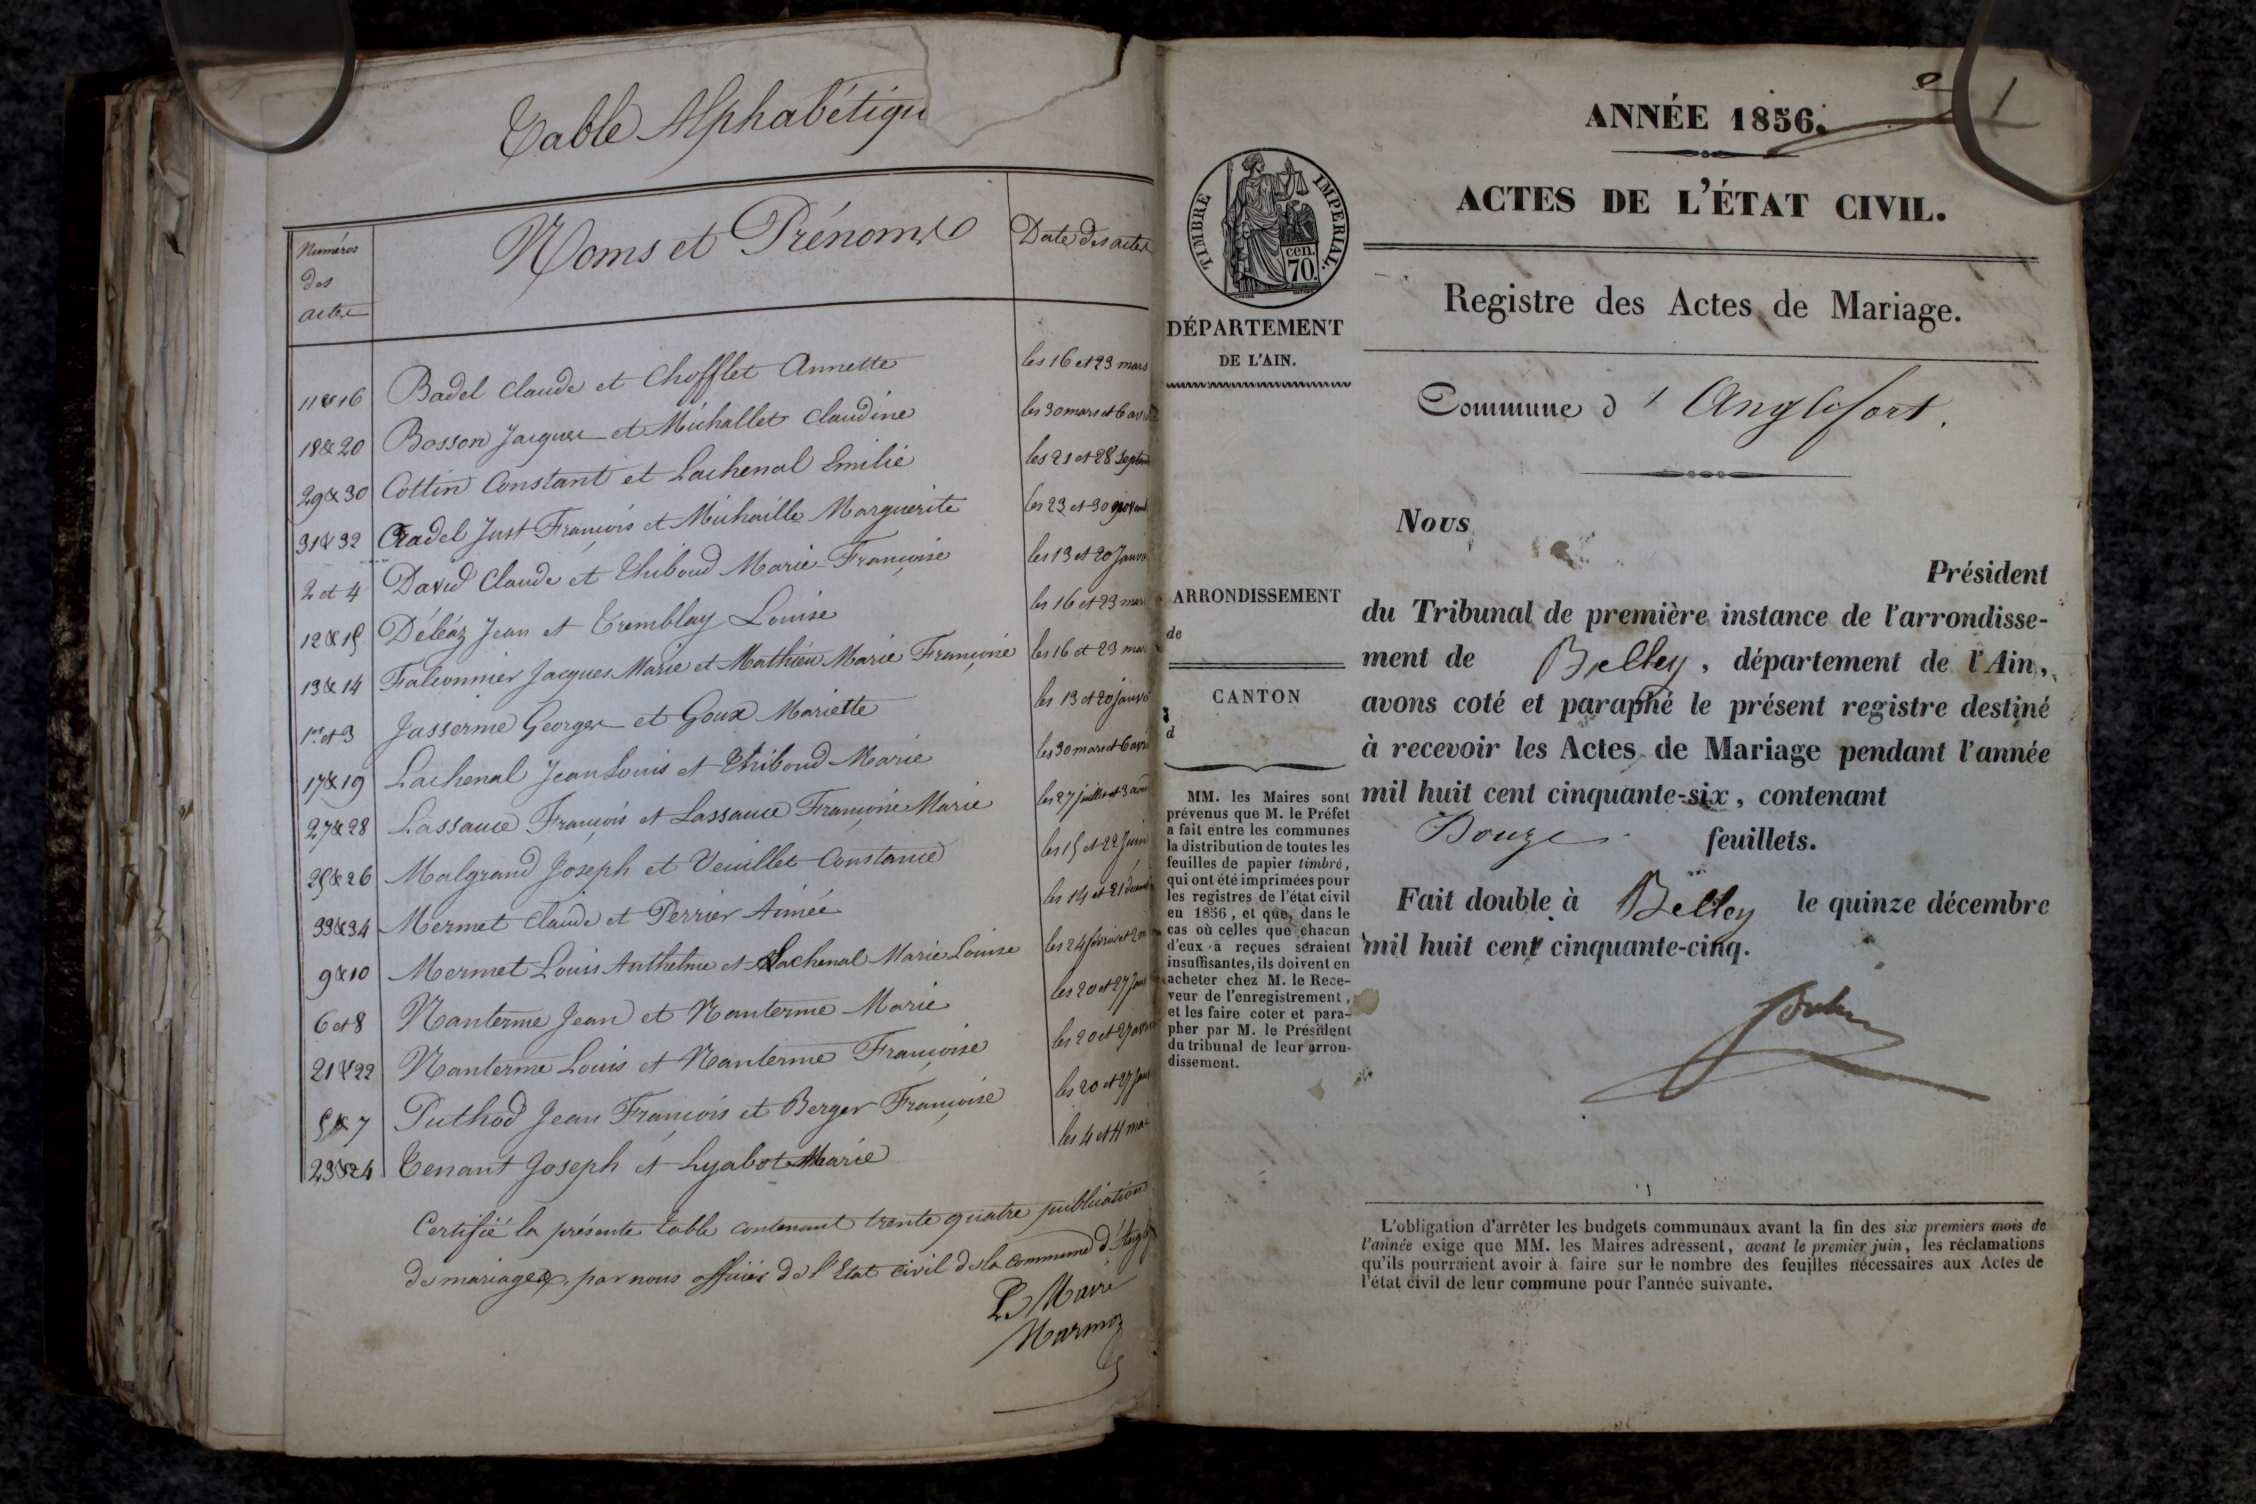 Table Alphabétique
Numéros des actes
Noms et Prénoms
Date des actes
11 & 16 Badel Claude et Chofflet Annette les 16 et 23 mars
18 & 20 Bosson Jacques et Michallet Claudine les 30 mars et 6 avril
29 & 30 Cottin Constant et Lachenal Emilie les 21 et 28 Septem
31 & 32 Cradel Just François et Michaille Marguerite les 23 et 30 novemb
2 et 4 David Claude et Thiboud Marie Françoise les 13 et 20 Janvi
12 & 15 Déléaz Jean et Tremblay Louise les 16 et 23 mars
13 & 14 Falconnier Jacques Marie et Mathieu Marie Françoise les 16 et 23 mars
1er et 3 Jasserme George et Goux Mariette les 13 et 20 janvi
17 & 19 Lachenal Jean Louis et Thiboud Marie les 30 mars et 6 avri
27 & 28 Lassauce François et Lassauce Françoise Marie les 27 juillet et 3 aout
25 & 26 Malgrand Joseph et Veuillet Constance les 15 et 22 Juin
33 & 34 Mermet Claude et Perrier Aimée les 14 et 21 décemb
9 & 10 Mermet Louis Anthelme et Lachenal Marie Louise les 24 février et 2 m
6 et 8 Nanterme Jean et Nanterme Marie les 20 et 27 Janv
21 & 22 Nanterme Louis et Nanterme Françoise les 20 et 27 avri
5 & 7 Puthod Jean François et Berger Françoise les 20 et 27 Janv
23 & 24 Tenant Joseph et Lyabot Marie les 4 et 11 mai
Certifié la présente table contenant trente quatre publications
de mariages, par nous officier de l'Etat civil de la commune d'Anglef
Le Maire
Marmoz
TIMBRE IMPERIAL.
cen. 70.
DÉPARTEMENT
DE L'AIN.
ARRONDISSEMENT
de
CANTON
d
MM. les Maires sont
prévenus que M. le Préfet
a fait entre les communes
la distribution de toutes les
feuilles de papier timbré,
qui ont été imprimées pour
les registres de l'état civil
en 1856, et que, dans le
cas où celles que chacun
d'eux a reçues seraient
insuffisantes, ils doivent en
acheter chez M. le Rece-
veur de l'enregistrement,
et les faire coter et para-
pher par M. le Président
du tribunal de leur arron-
dissement.
1
ANNÉE 1856.
ACTES DE L'ÉTAT CIVIL.
Registre des Actes de Mariage.
Commune d' Anglefort.
Nous
Président
du Tribunal de première instance de l'arrondisse-
ment de Belley, département de l'Ain,
avons coté et paraphé le présent registre destiné
à recevoir les Actes de Mariage pendant l'année
mil huit cent cinquante-six, contenant
Douze feuillets.
Fait double à Belley le quinze décembre
mil huit cent cinquante-cinq.
L'obligation d'arrêter les budgets communaux avant la fin des six premiers mois de
l'année exige que MM. les Maires adressent, avant le premier juin, les réclamations
qu'ils pourraient avoir à faire sur le nombre des feuilles nécessaires aux Actes de
l'état civil de leur commune pour l'année suivante.